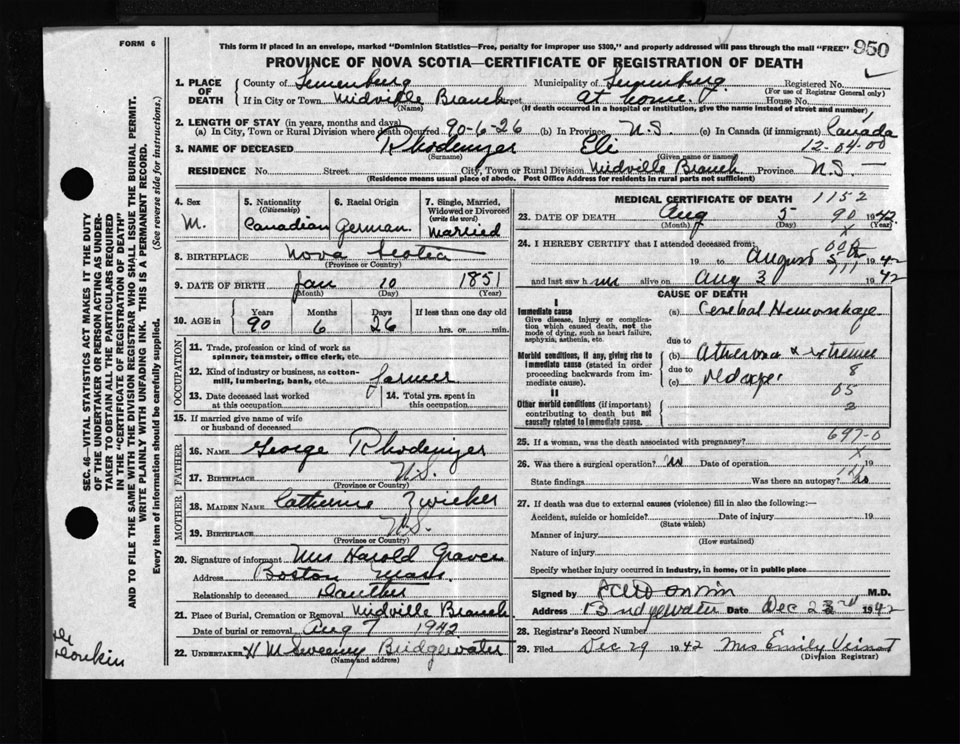 FORM 6
This form if placed in an envelope, marked "Dominion Statistics—Free, penalty for improper use $300," and properly addressed will pass through the mail "FREE" 950
PROVINCE OF NOVA SCOTIA—CERTIFICATE OF REGISTRATION OF DEATH
1. PLACE OF DEATH County of Lunenburg Municipality of Lunenburg Registered No.
(For use of Registrar General only)
If in City or Town Midville Branch Street at home. House No.
(Name) (If death occurred in a hospital or institution, give the name instead of street and number)
2. LENGTH OF STAY (in years, months and days)
(a) In City, Town or Rural Division where death occurred 90-6-26 (b) In Province N.S. (c) In Canada (if immigrant) Canada
3. NAME OF DECEASED Rhodenizer Eli 12-04-00
(Surname) (Given name or names)
RESIDENCE No. Street City, Town or Rural Division Midville Branch Province N.S.
(Residence means usual place of abode. Post Office Address for residents in rural parts not sufficient)
4. Sex M.
5. Nationality (Citizenship) Canadian
6. Racial Origin German
7. Single, Married, Widowed or Divorced (write the word) Married
8. BIRTHPLACE Nova Scotia
(Province or Country)
9. DATE OF BIRTH Jan 10 1851
(Month) (Day) (Year)
10. AGE in Years 90 Months 6 Days 26 If less than one day old hrs. or min.
OCCUPATION
11. Trade, profession or kind of work as spinner, teamster, office clerk, etc.
12. Kind of industry or business, as cotton-mill, lumbering, bank, etc. farmer
13. Date deceased last worked at this occupation
14. Total yrs. spent in this occupation
15. If married give name of wife or husband of deceased
FATHER
16. NAME George Rhodenizer
17. BIRTHPLACE N.S.
(Province or Country)
MOTHER
18. MAIDEN NAME Catherine Zwicker
19. BIRTHPLACE N.S.
(Province or Country)
20. Signature of informant Mrs Harold Graves
Address Boston Mass.
Relationship to deceased Daughter
21. Place of Burial, Cremation or Removal Midville Branch
Date of burial or removal Aug 7 1942
22. UNDERTAKER H M Sweeny Bridgewater
(Name and address)
MEDICAL CERTIFICATE OF DEATH 1152
23. DATE OF DEATH Aug 5 90 1942
(Month) (Day) (Year)
24. I HEREBY CERTIFY that I attended deceased from:
19 to August 5 1942
and last saw him alive on Aug 3 1942
CAUSE OF DEATH
I
Immediate cause
Give disease, injury or complication which caused death, not the mode of dying, such as heart failure, asphyxia, asthenia, etc.
(a) Cerebral Hemorrhage
due to
Morbid conditions, if any, giving rise to immediate cause (stated in order proceeding backwards from immediate cause).
(b) Atheroma & extreme
due to 8
(c) old age
05
II
Other morbid conditions (if important) contributing to death but not causally related to immediate cause.
2
25. If a woman, was the death associated with pregnancy? 697-0
26. Was there a surgical operation? no Date of operation 19
State findings Was there an autopsy? no
27. If death was due to external causes (violence) fill in also the following:—
Accident, suicide or homicide? Date of injury 19
(State which)
Manner of injury
(How sustained)
Nature of injury
Specify whether injury occurred in industry, in home, or in public place
Signed by M.D.
Address Bridgewater Date Dec 23rd 1942
28. Registrar's Record Number
29. Filed Dec 29 1942 Mrs Emily Veinot
(Division Registrar)
SEC. 46—VITAL STATISTICS ACT MAKES IT THE DUTY
OF THE UNDERTAKER OR PERSON ACTING AS UNDERTAKER TO OBTAIN ALL THE PARTICULARS REQUIRED
IN THE "CERTIFICATE OF REGISTRATION OF DEATH"
AND TO FILE THE SAME WITH THE DIVISION REGISTRAR WHO SHALL ISSUE THE BURIAL PERMIT.
WRITE PLAINLY WITH UNFADING INK. THIS IS A PERMANENT RECORD.
Every item of information should be carefully supplied. (See reverse side for instructions.)
Donkin